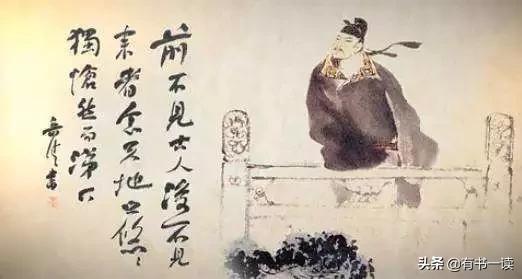 前不見古人後不見
来者念天地之悠々
獨愴然而涕下
头条 @有书一读